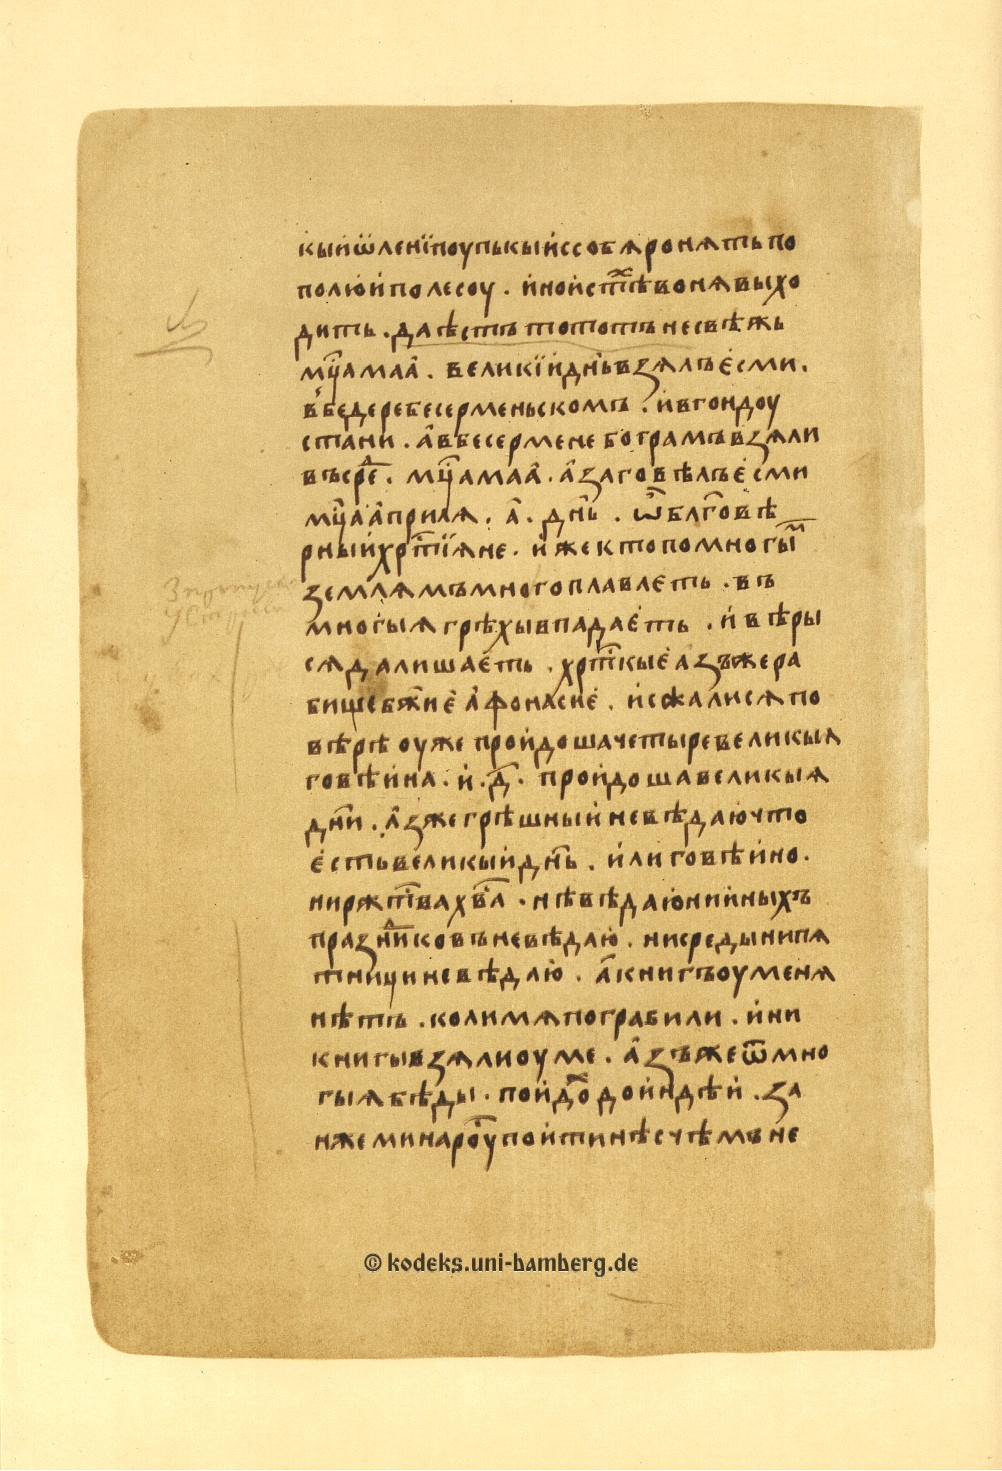 кыи ѿлени поупькыи ссобя ронять по
полю и по лесоу . ино ис тѣх воня выхо
дить . да ѣстъ тототъ несвѣжь
мц҃а маа . великїи дн҃ь взялъ есми .
в бедере бесерменьскомъ . и в гондоу
стани . а в бесермене бограмъ взяли
въ срд҃е . мц҃а маа . а заговѣлъ есми
мц҃а априля . а҃ . дн҃ь . ѿ бл҃говѣ
рныи хрт҃їяне . иже кто по многы м
землямъ много плавлеть . въ
многыя грѣхы впадаеть . и вѣры
ся да лишаеть . хрт҃кые азъже ра
бище бж҃ие афонасие . и сжалися по
вѣрѣ оуже проидоша четыре великыя
говѣина . и . д҃ . проидоша великыя
дн҃и . аз же грѣшныи не вѣдаю что
есть великыи дн҃ь . или говѣино .
ни ржт҃ва хв҃а . не вѣдаю ни иных
празниковъ не вѣдаю . ни среды ни пя
тници не вѣдаю . а книгъ оу меня
нѣтъ . коли мя пограбили . ини
книгы взяли оу ме . азъ же ѿ мно
гыя бѣды . поидох до индѣи . за
нже ми на роу поити нѣс чѣмъ не
© kodeks.uni-bamberg.de